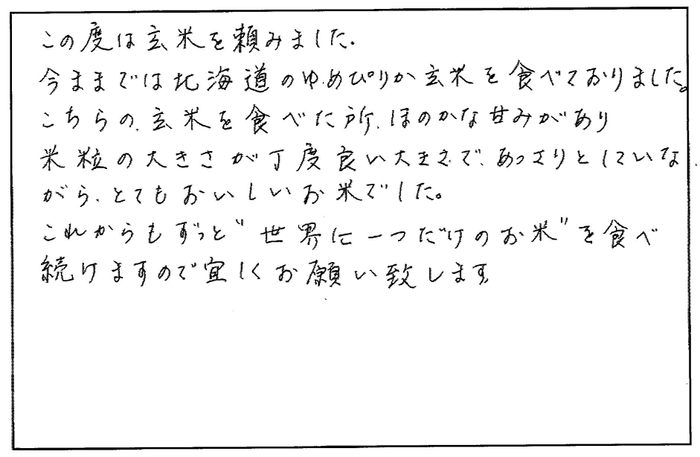 この度は玄米を頼みました.
今まままでは北海道のゆめぴりか玄米を食べておりました。
こちらの玄米を食べた所、ほのかな甘みがあり
米粒の大きさが丁度良い大きさで、あっさりとしていな
がら、とてもおいしいお米でした。
これからもずっと"世界に一つだけのお米"を食べ
続けますので宜しくお願い致します